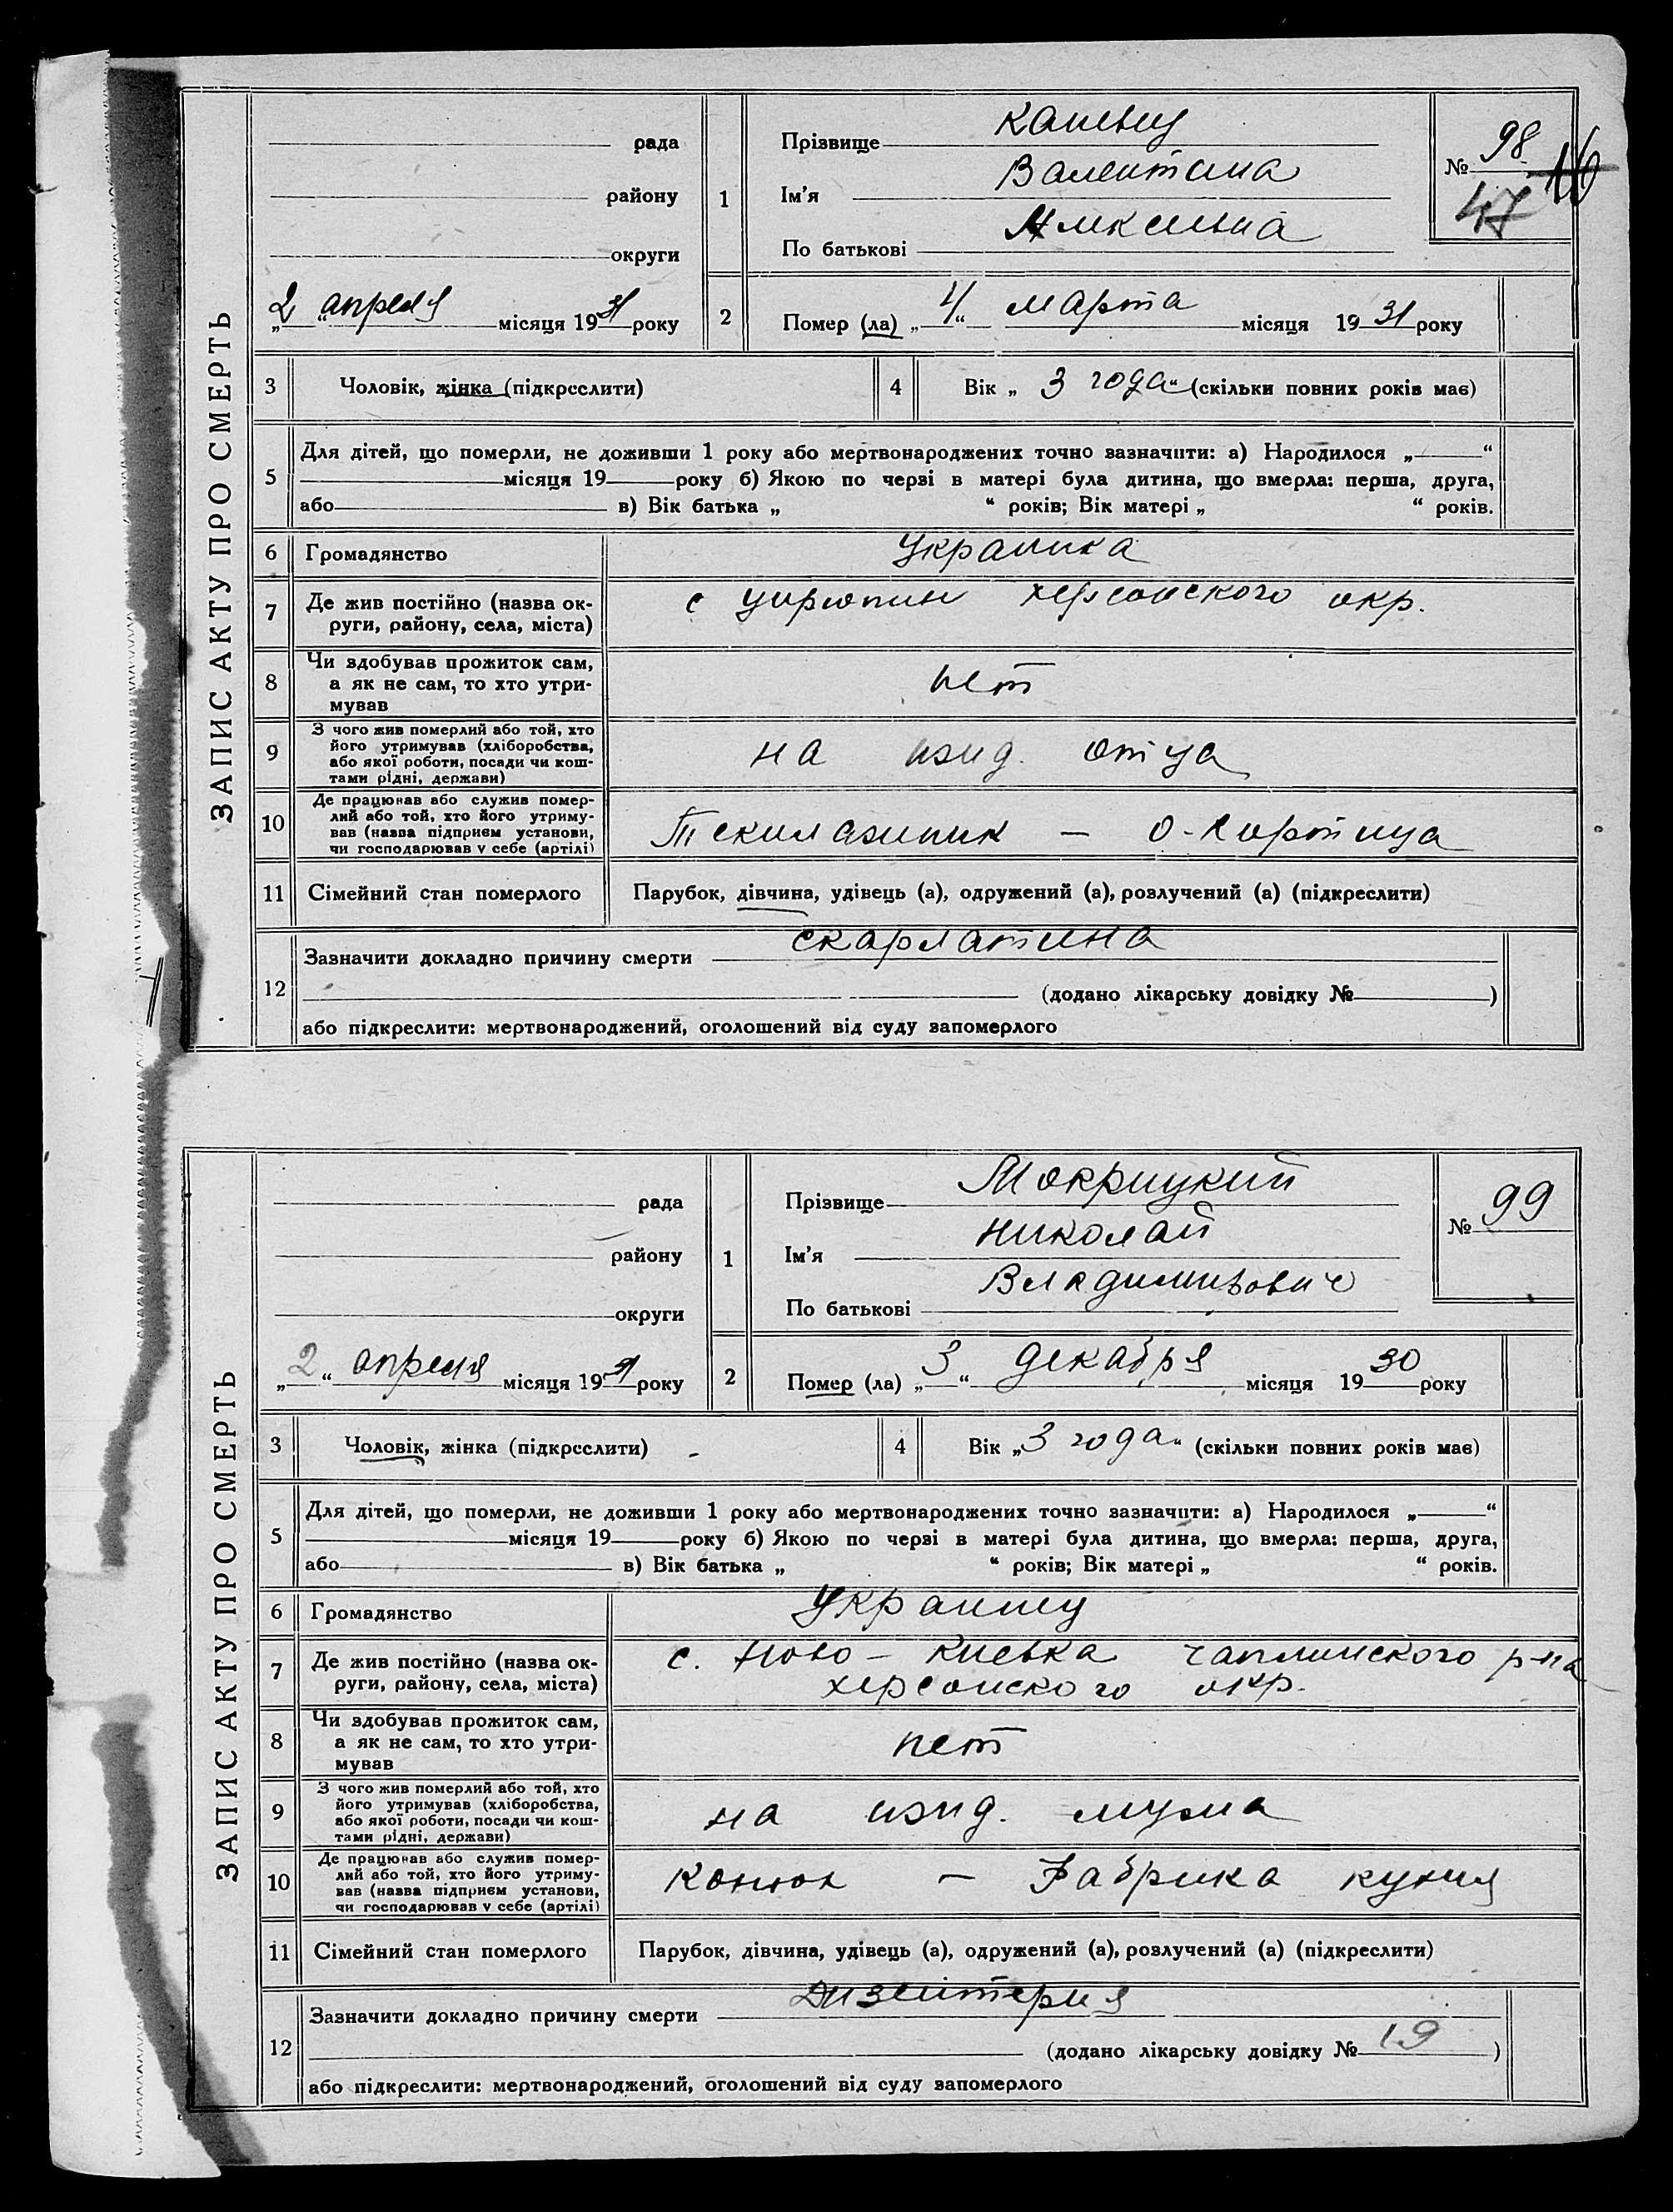 ЗАПИС АКТУ ПРО СМЕРТЬ
рада
району
округи
„2“ апреля місяця 1931 року
1
Прізвище Канивец
Ім'я Валентина
По батькові
№ 98
47
16
2
Помер (ла) „4“ марта місяця 1931 року
3
Чоловік, жінка (підкреслити)
4
Вік „3 года“ (скільки повних років має)
5
Для дітей, що померли, не доживши 1 року або мертвонароджених точно зазначити: а) Народилося „ “
місяця 19 року б) Якою по черзі в матері була дитина, що вмерла: перша, друга,
або в) Вік батька „ “ років; Вік матері „ “ років.
6
Громадянство
Украинка
7
Де жив постійно (назва ок-
руги, району, села, міста)
с Херсонского окр.
8
Чи здобував прожиток сам,
а як не сам, то хто утри-
мував
нет
9
З чого жив померлий або той, хто
його утримував (хліборобства,
або якої роботи, посади чи кош-
тами рідні, держави)
на ижд. отца
10
Де працював або служив помер-
лий або той, хто його утриму-
вав (назва підприєм установи,
чи господарював у себе (артілі)
— о-Хортица
11
Сімейний стан померлого
Парубок, дівчина, удівець (а), одружений (а), розлучений (а) (підкреслити)
12
Зазначити докладно причину смерти скарлатина
(додано лікарську довідку № )
або підкреслити: мертвонароджений, оголошений від суду запомерлого
ЗАПИС АКТУ ПРО СМЕРТЬ
рада
району
округи
„2“ апреля місяця 1931 року
1
Прізвище Мокрицкий
Ім'я Николай
По батькові Владимирович
№ 99
2
Помер (ла) „3“ декабря місяця 1930 року
3
Чоловік, жінка (підкреслити)
4
Вік „3 года“ (скільки повних років має)
5
Для дітей, що померли, не доживши 1 року або мертвонароджених точно зазначити: а) Народилося „ “
місяця 19 року б) Якою по черзі в матері була дитина, що вмерла: перша, друга,
або в) Вік батька „ “ років; Вік матері „ “ років.
6
Громадянство
Украинец
7
Де жив постійно (назва ок-
руги, району, села, міста)
с. Ново-Киевка Чаплинского р-на
Херсонского окр.
8
Чи здобував прожиток сам,
а як не сам, то хто утри-
мував
нет
9
З чого жив померлий або той, хто
його утримував (хліборобства,
або якої роботи, посади чи кош-
тами рідні, держави)
на ижд. мужа
10
Де працював або служив помер-
лий або той, хто його утриму-
вав (назва підприєм установи,
чи господарював у себе (артілі)
Конюх — Фабрика кухня
11
Сімейний стан померлого
Парубок, дівчина, удівець (а), одружений (а), розлучений (а) (підкреслити)
12
Зазначити докладно причину смерти Дизентерия
(додано лікарську довідку № 19 )
або підкреслити: мертвонароджений, оголошений від суду запомерлого